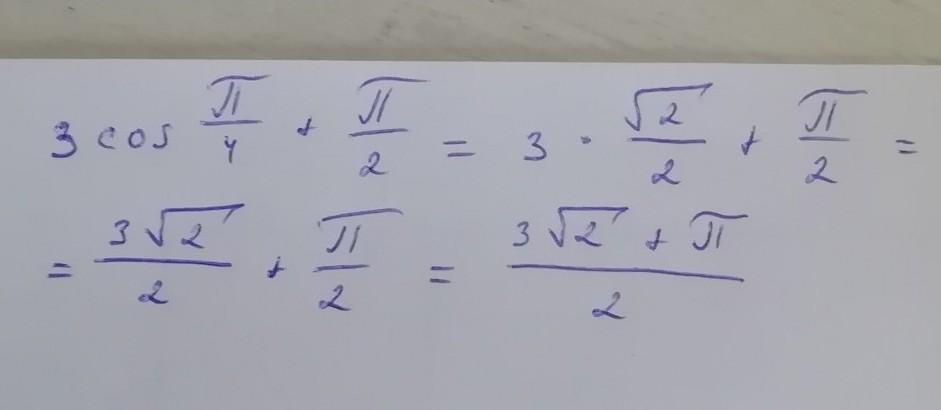 3 cos π/4 + π/2 = 3 · √2/2 + π/2 =
= 3√2/2 + π/2 = (3√2 + π)/2